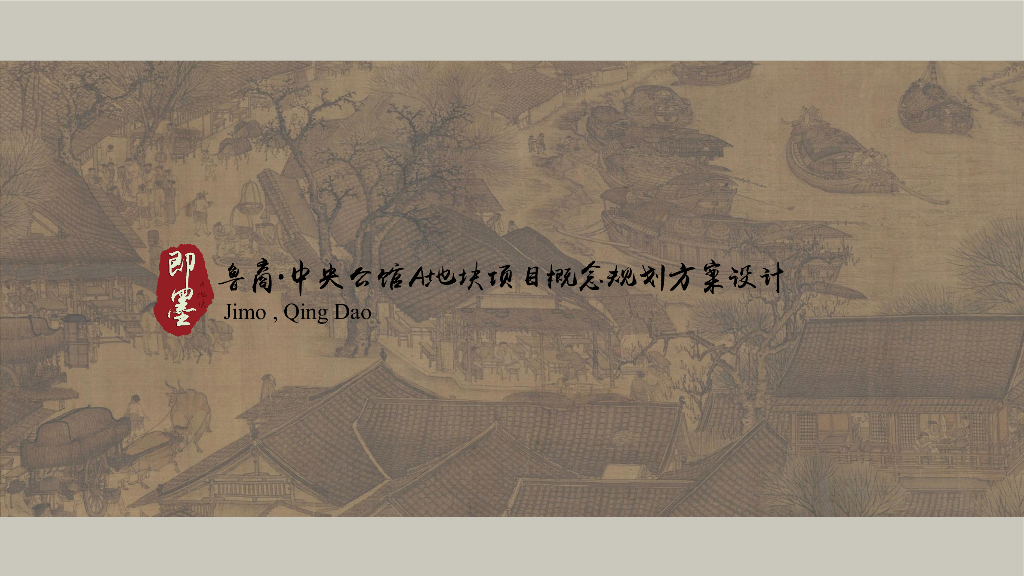 即墨
鲁商·中央公馆A地块项目概念规划方案设计
Jimo , Qing Dao